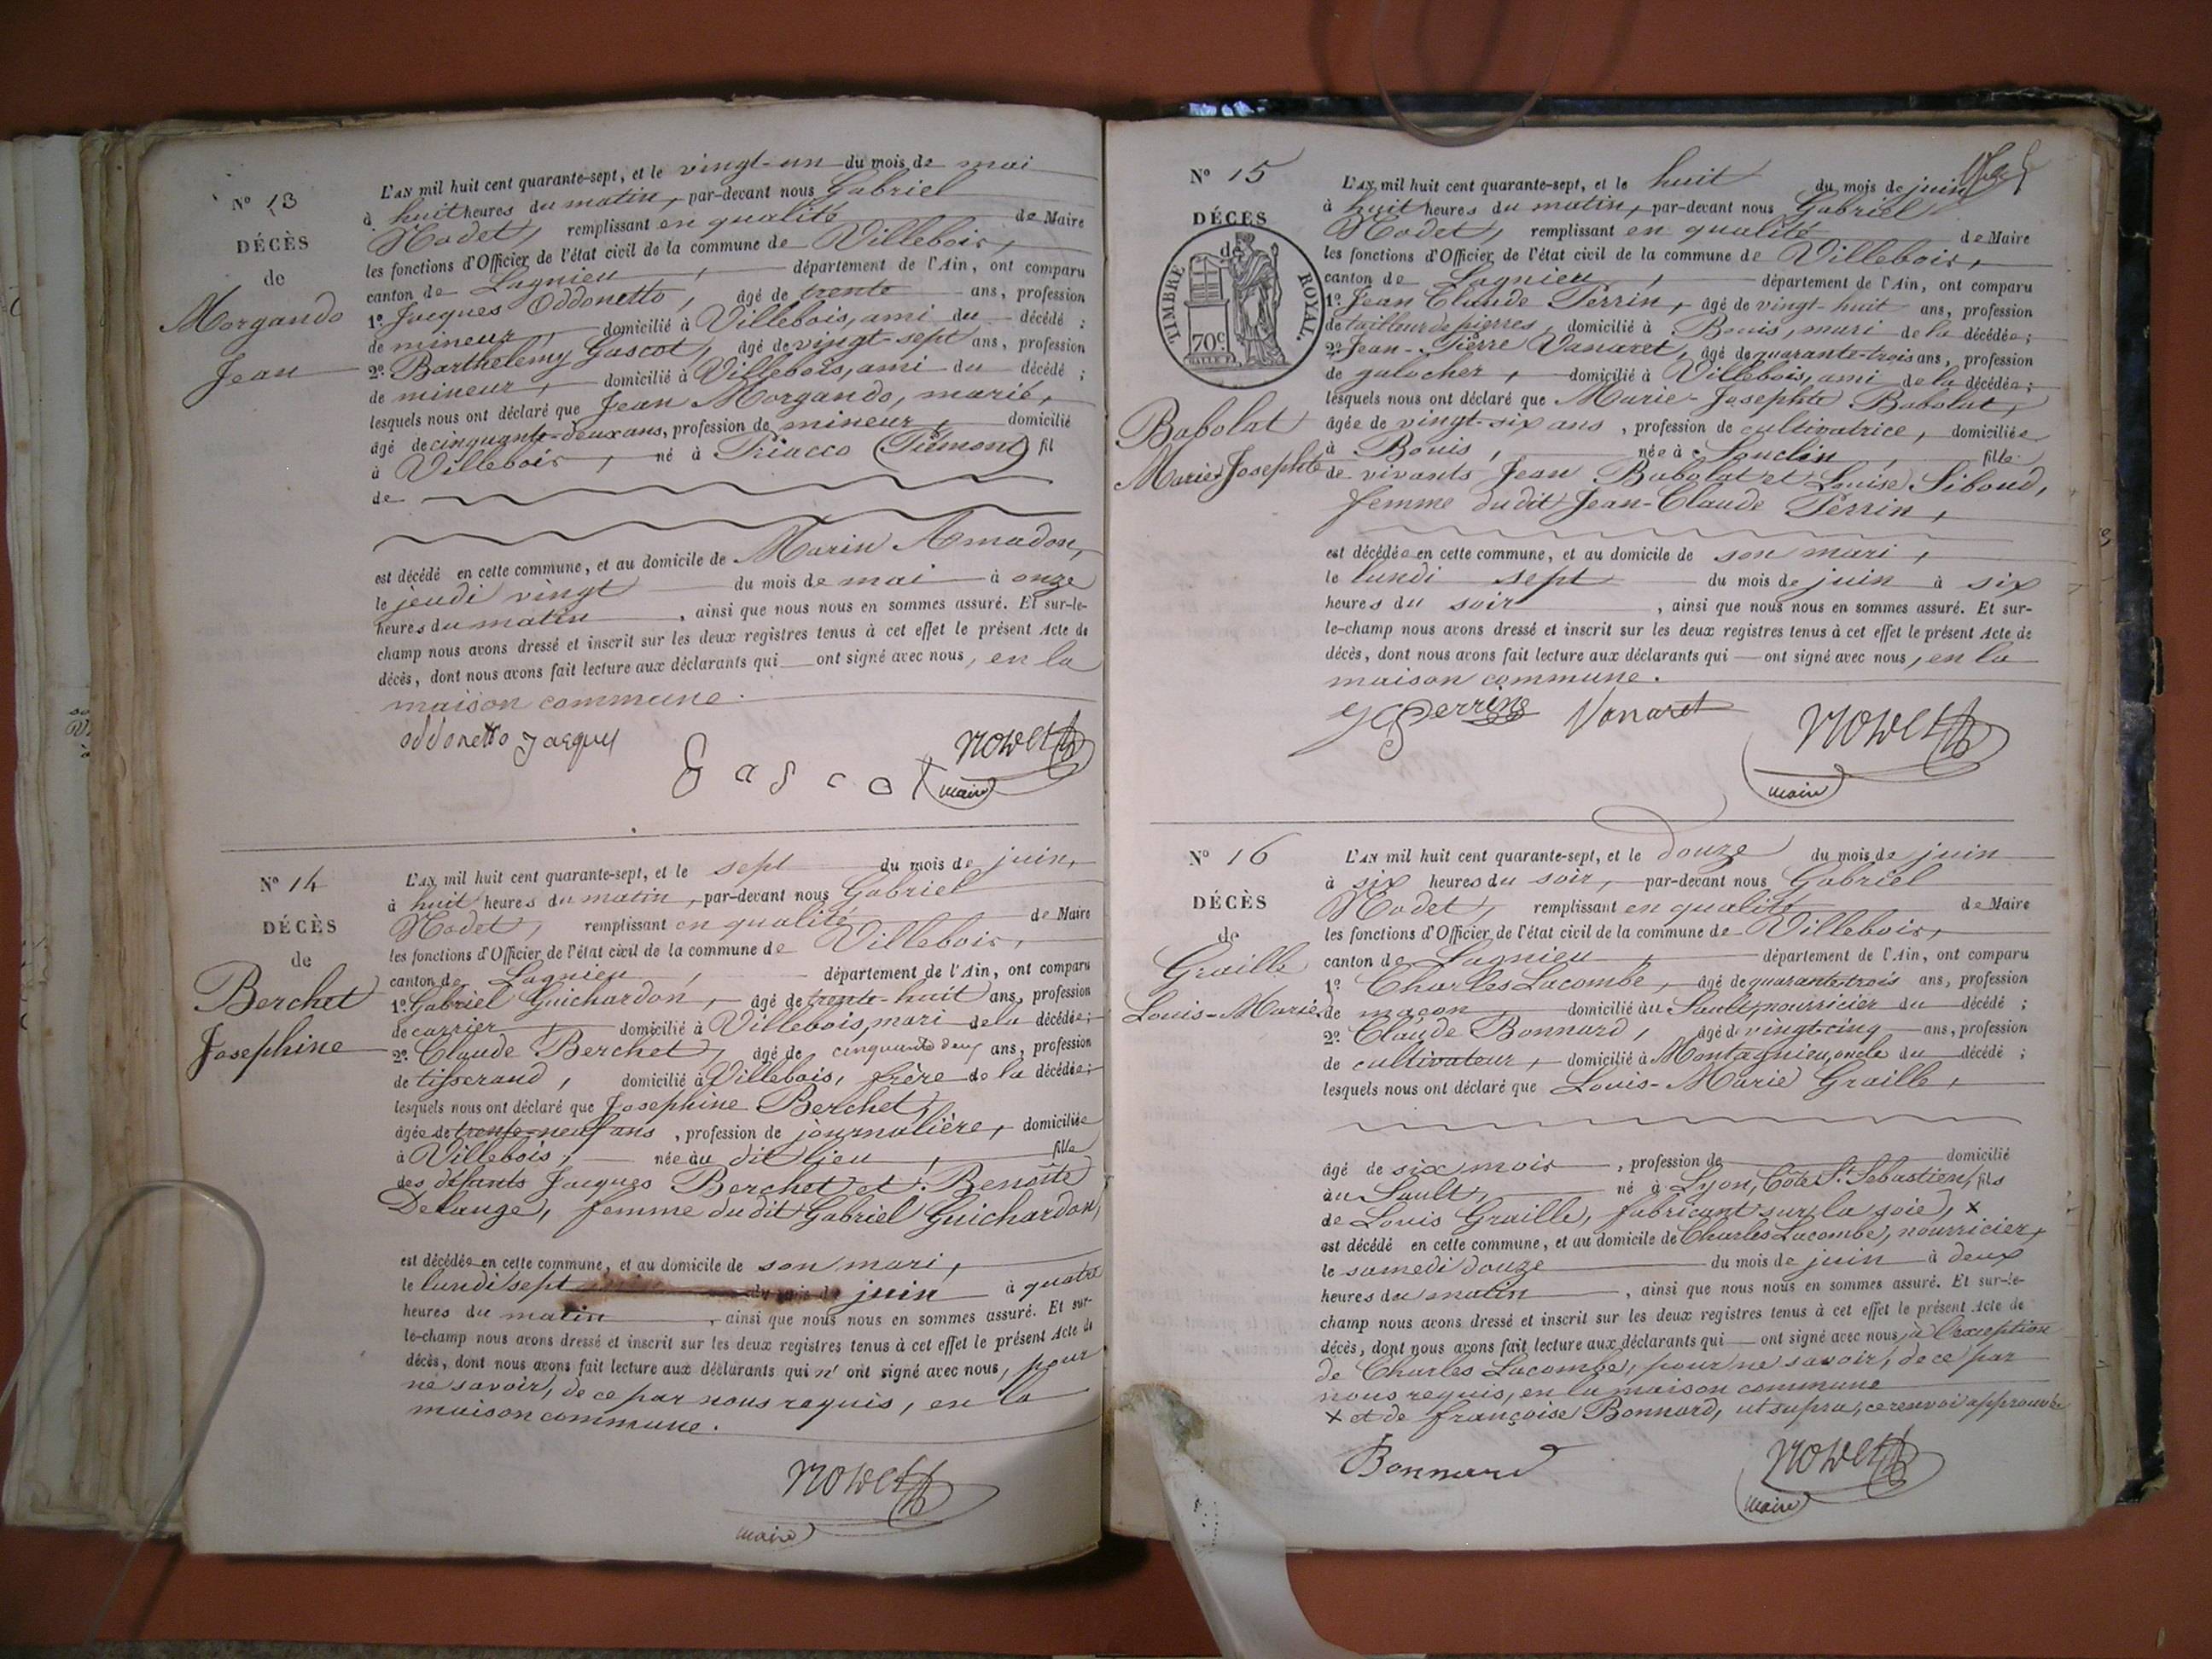 N° 13
DÉCÈS
de
Morgando
Jean
L'AN mil huit cent quarante-sept, et le vingt-un du mois de mai
à huit heures du matin, par-devant nous Gabriel
Nodet, remplissant en qualité de Maire
les fonctions d'Officier de l'état civil de la commune de Villebois,
canton de Lagnieu, département de l'Ain, ont comparu
1° Jacques Oddonetto, âgé de trente ans, profession
de mineur, domicilié à Villebois, ami du décédé;
2° Barthelemy Gascot, âgé de vingt-sept ans, profession
de mineur, domicilié à Villebois, ami du décédé;
lesquels nous ont déclaré que Jean Morgando, marié,
âgé de cinquante-deux ans, profession de mineur, domicilié
à Villebois, né à Priacco (Piémont) fil
de
est décédé en cette commune, et au domicile de Marin Amadon,
le jeudi vingt du mois de mai à onze
heures du matin, ainsi que nous nous en sommes assuré. Et sur-le-
champ nous avons dressé et inscrit sur les deux registres tenus à cet effet le présent Acte de
décès, dont nous avons fait lecture aux déclarants qui ont signé avec nous, en la
maison commune.
oddonetto Jacques
Gascot
Nodet
maire
N° 14
DÉCÈS
de
Berchet
Josephine
L'AN mil huit cent quarante-sept, et le sept du mois de juin,
à huit heures du matin, par-devant nous Gabriel
Nodet, remplissant en qualité de Maire
les fonctions d'Officier de l'état civil de la commune de Villebois,
canton de Lagnieu, département de l'Ain, ont comparu
1° Gabriel Guichardon, âgé de trente-huit ans, profession
de carrier, domicilié à Villebois, mari de la décédée;
2° Claude Berchet, âgé de cinquante deux ans, profession
de tisserand, domicilié à Villebois, frère de la décédée;
lesquels nous ont déclaré que Josephine Berchet,
âgée de trente-neuf ans, profession de journalière, domiciliée
à Villebois, née au dit lieu, fille
des défunts Jacques Berchet et Benoîte
Delange, femme du dit Gabriel Guichardon,
est décédée en cette commune, et au domicile de son mari,
le lundi sept du mois de juin à quatre
heures du matin, ainsi que nous nous en sommes assuré. Et sur-
le-champ nous avons dressé et inscrit sur les deux registres tenus à cet effet le présent Acte de
décès, dont nous avons fait lecture aux déclarants qui n'ont signé avec nous, pour
ne savoir, de ce par nous requis, en la
maison commune.
Nodet
maire
N° 15
DÉCÈS
de
TIMBRE ROYAL.
70c
Babolat
Marie-Josephte
L'AN mil huit cent quarante-sept, et le huit du mois de juin
à huit heures du matin, par-devant nous Gabriel
Nodet, remplissant en qualité de Maire
les fonctions d'Officier de l'état civil de la commune de Villebois,
canton de Lagnieu, département de l'Ain, ont comparu
1° Jean Claude Perrin, âgé de vingt-huit ans, profession
de tailleur de pierres, domicilié à Bouis, mari de la décédée;
2° Jean-Pierre Vanaret, âgé de quarante-trois ans, profession
de galocher, domicilié à Villebois, ami de la décédée;
lesquels nous ont déclaré que Marie-Josephte Babolat,
âgée de vingt-six ans, profession de cultivatrice, domiciliée
à Bouis, née à Souclin, fille
de vivants Jean Babolat et Louise Siboud,
femme du dit Jean-Claude Perrin,
est décédée en cette commune, et au domicile de son mari,
le lundi sept du mois de juin à six
heures du soir, ainsi que nous nous en sommes assuré. Et sur-
le-champ nous avons dressé et inscrit sur les deux registres tenus à cet effet le présent Acte de
décès, dont nous avons fait lecture aux déclarants qui ont signé avec nous, en la
maison commune.
Perrin Vanaret
Nodet
maire
N° 16
DÉCÈS
de
Graille
Louis-Marie
L'AN mil huit cent quarante-sept, et le douze du mois de juin
à six heures du soir, par-devant nous Gabriel
Nodet, remplissant en qualité de Maire
les fonctions d'Officier de l'état civil de la commune de Villebois,
canton de Lagnieu, département de l'Ain, ont comparu
1° Charles Lacombe, âgé de quarante-trois ans, profession
de maçon, domicilié au Sault, nourricier du décédé;
2° Claude Bonnard, âgé de vingt-cinq ans, profession
de cultivateur, domicilié à Montagnieu, oncle du décédé;
lesquels nous ont déclaré que Louis-Marie Graille,
âgé de six mois, profession de domicilié
au Sault, né à Lyon, Côte St. Sébastien, fils
de Louis Graille, fabricant sur la soie, x
est décédé en cette commune, et au domicile de Charles Lacombe, nourricier,
le samedi douze du mois de juin à deux
heures du matin, ainsi que nous nous en sommes assuré. Et sur-le-
champ nous avons dressé et inscrit sur les deux registres tenus à cet effet le présent Acte de
décès, dont nous avons fait lecture aux déclarants qui ont signé avec nous, à l'exception
de Charles Lacombe, pour ne savoir, de ce par
nous requis, en la maison commune
x et de françoise Bonnard, ut supra, ce renvoi approuvé
Bonnard
Nodet
maire